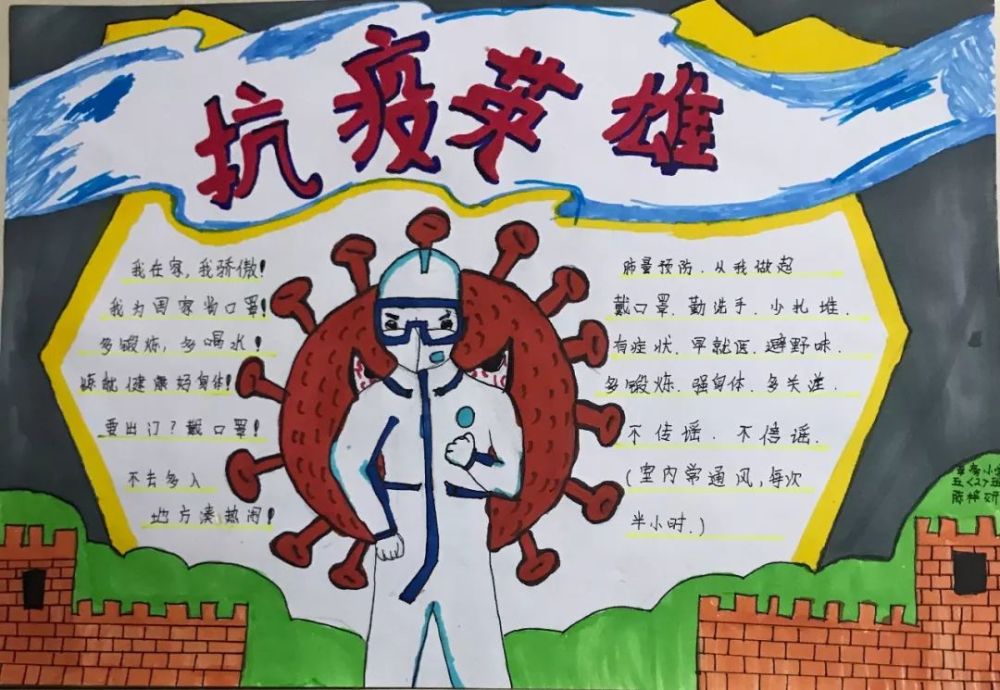 抗疫英雄
我在家,我骄傲!
我为国家当口罩!
多锻炼,多喝水!
炼就健康好身体!
要出门?戴口罩!
不去多人
地方凑热闹!
肺量预防.从我做起
戴口罩.勤洗手.少扎堆.
有症状.早就医.避野味.
多锻炼.强身体.多关注.
不传谣.不信谣.
(室内常通风,每次
半小时.)
小学
五<2>班